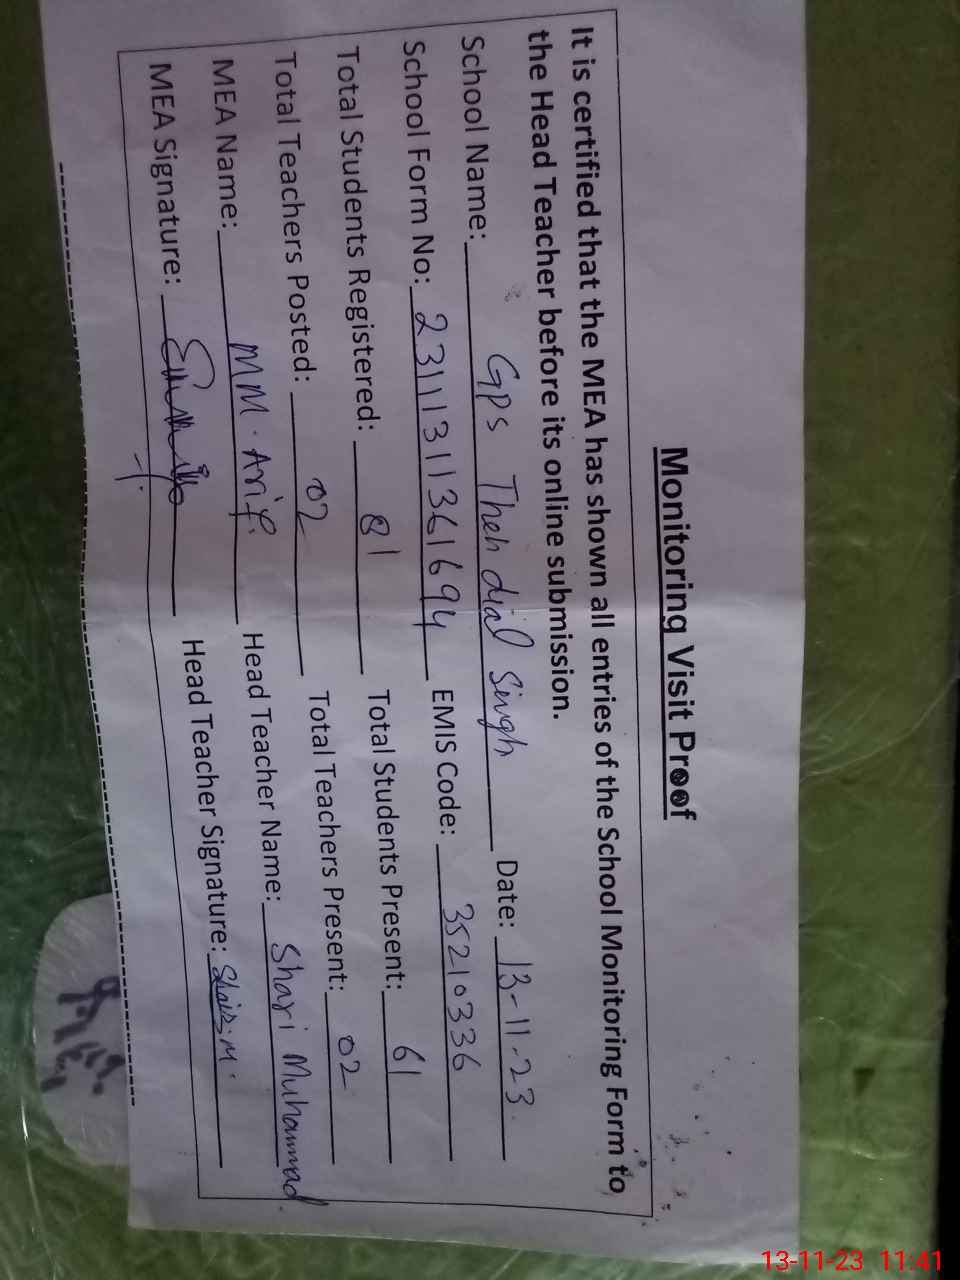 Monitoring Visit Proof
It is certified that the MEA has shown all entries of the School Monitoring Form to
the Head Teacher before its online submission.
School Name: Gps Theh dial Singh Date: 13-11-23.
School Form No: 23111311361694 EMIS Code: 35210336
Total Students Registered: 81 Total Students Present: 61
Total Teachers Posted: 02 Total Teachers Present: 02
MEA Name: MM. Arif. Head Teacher Name: Shari Muhammad
MEA Signature: Head Teacher Signature:
13-11-23 11:41